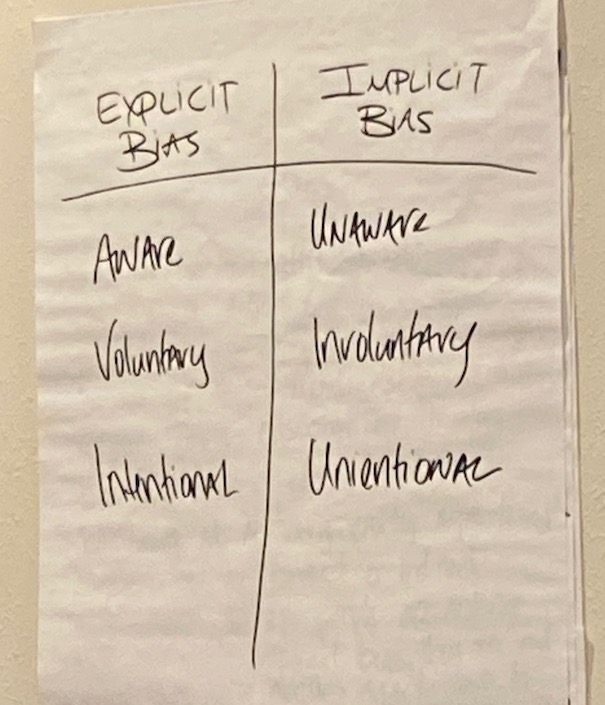 EXPLICIT
BIAS
IMPLICIT
BIAS
AWARE
UNAWARE
Voluntary
Involuntary
Intentional
Unientional